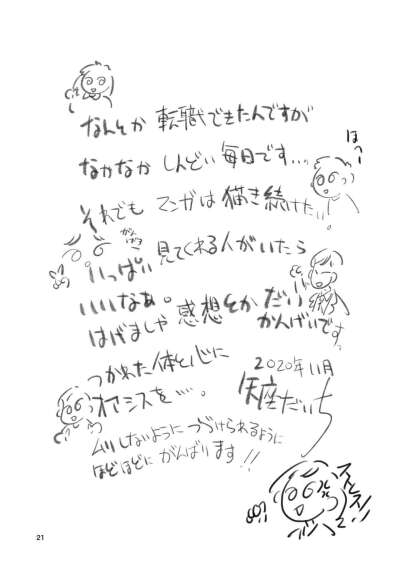 なんとか 転職できたんですが
なかなか しんどい毎日です...。
はっ
それでも マンガは描き続けたい
見てくれる人がいたら
いっぱい
いいなぁ。
感想とか だい
はげましや
かんげいです。
つかれた体と心に
オアシスを…。
2020年11月
ムリしないように つづけられるように
ほどほどに がんばります!!
21